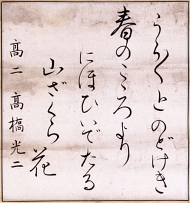 うら〱とのどけき
春のこゝろより
にほひいでたる
山ざくら花
高二 高橋光二